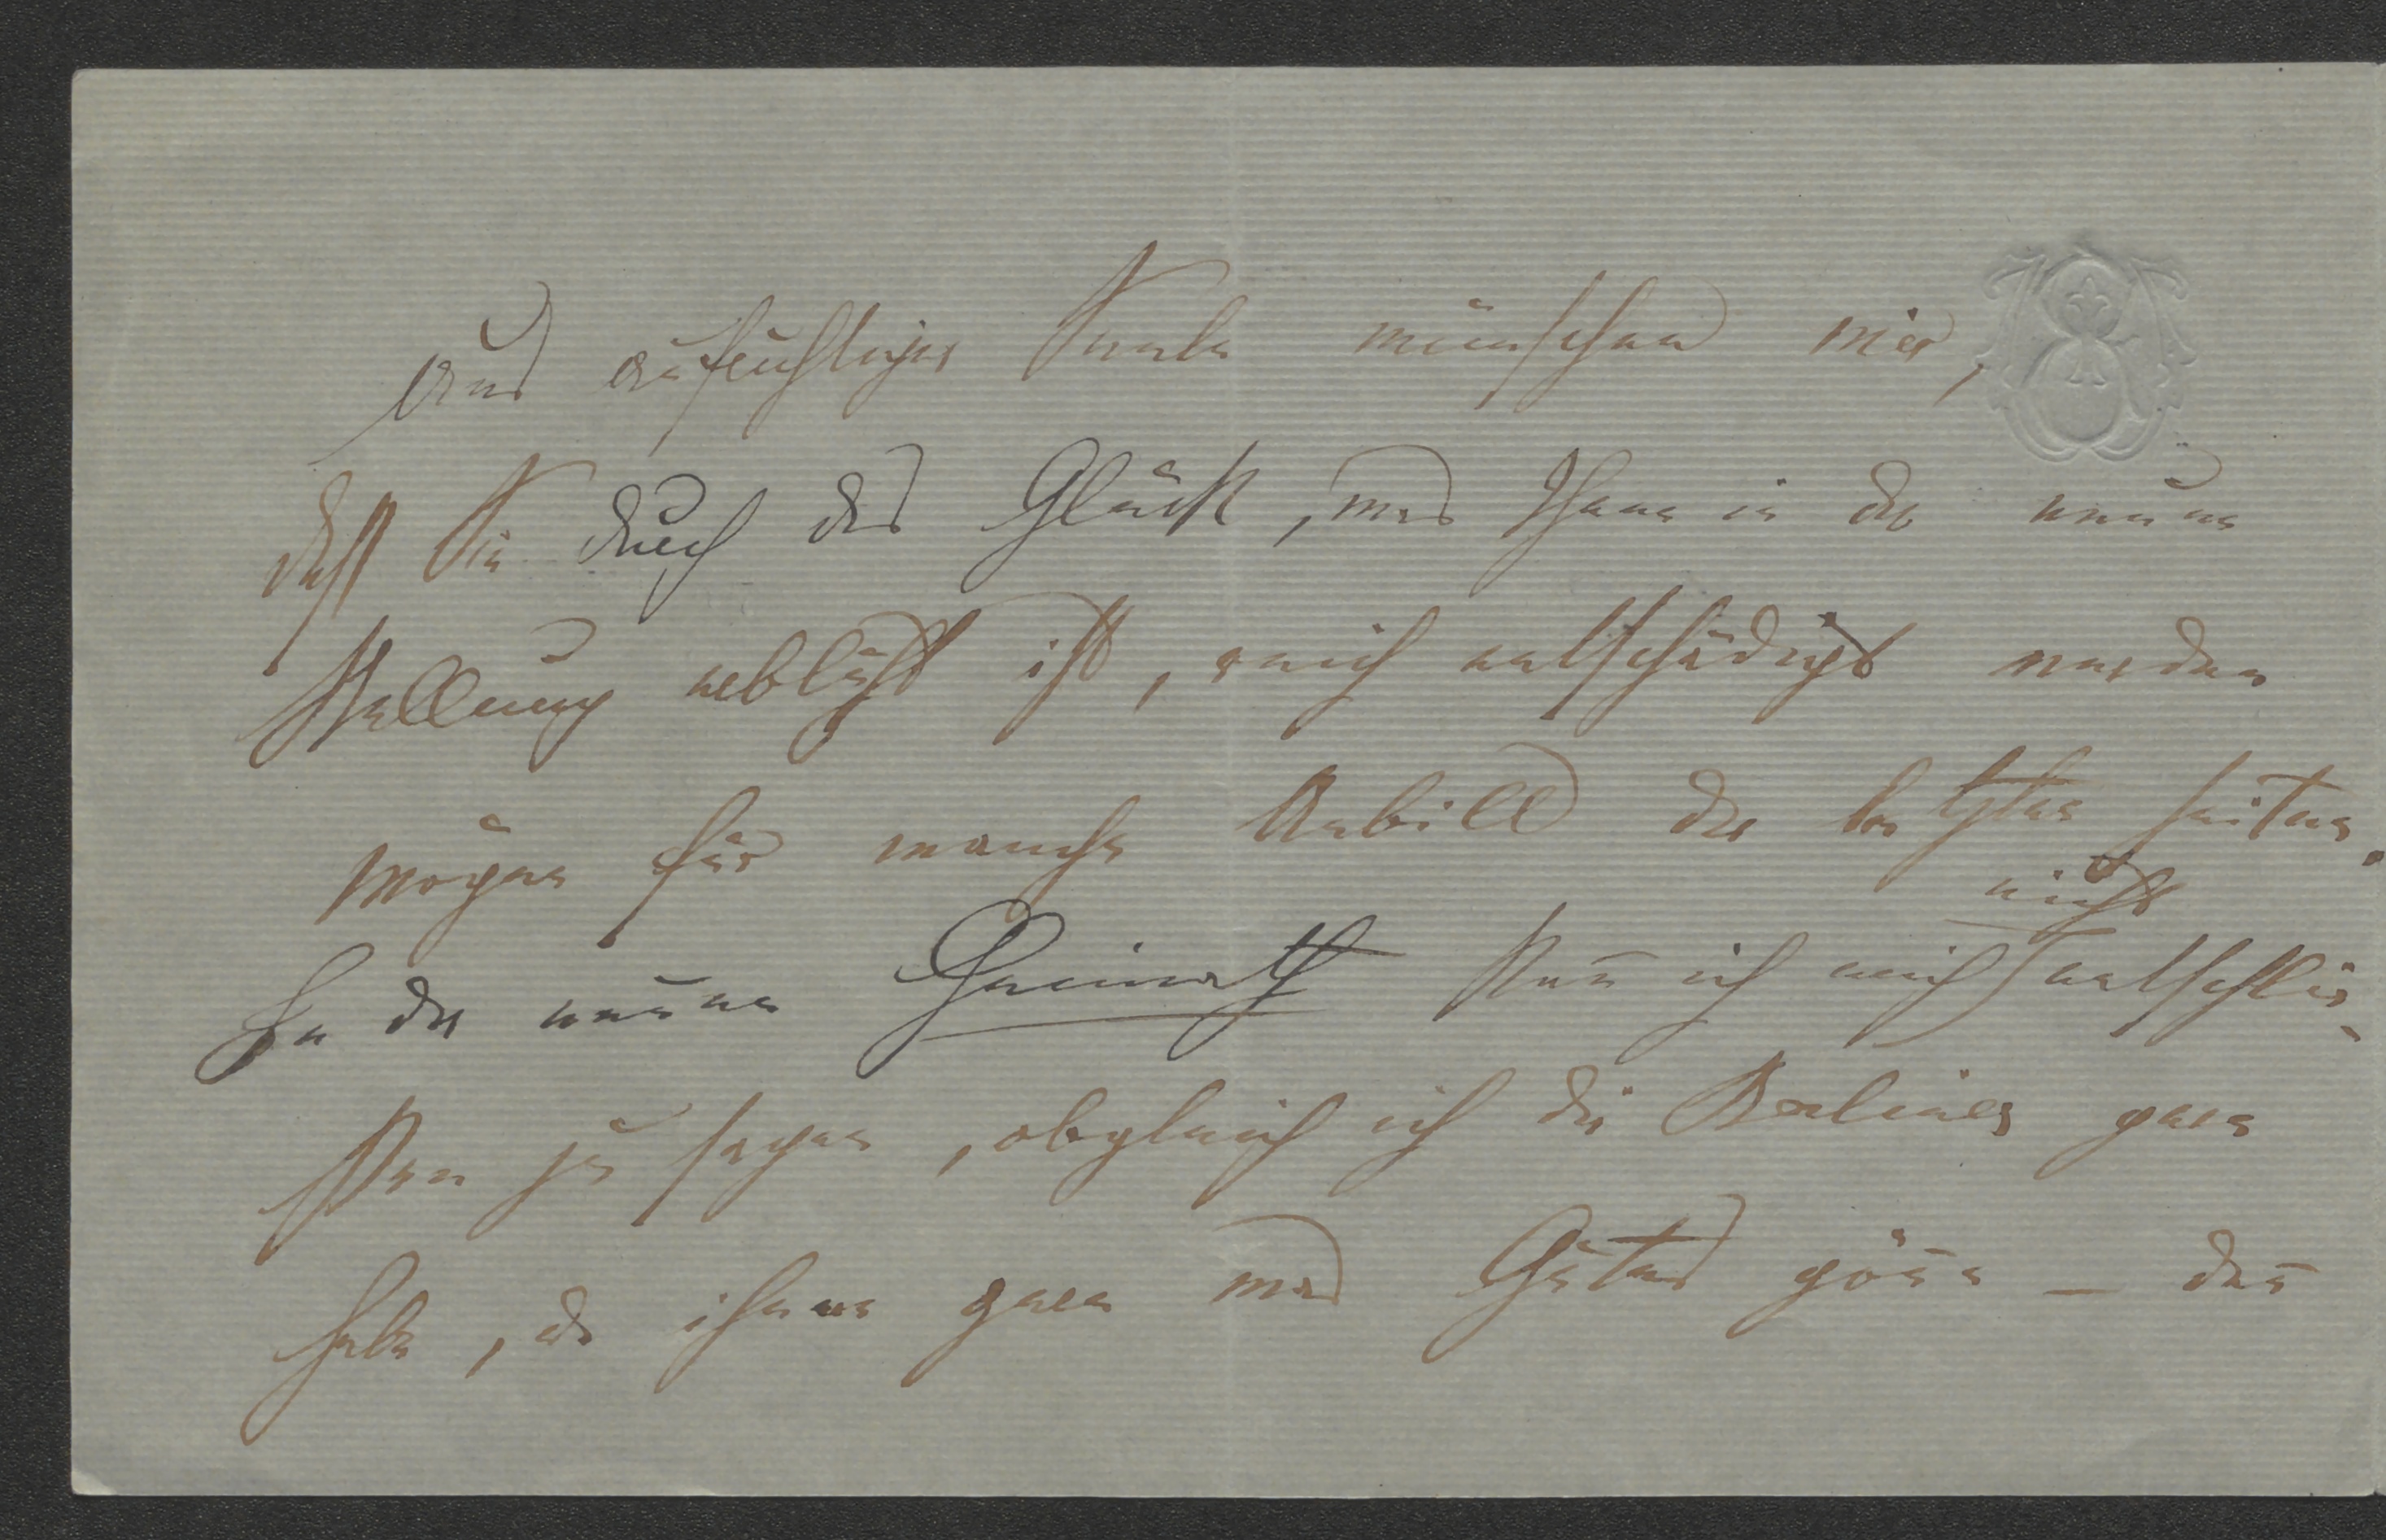 Aus aufrichtiger Seele wünschen wir,
daß Sie durch das Glück, was Ihnen in der neuen
Stellung erblüht ist, reich entschädigt werden
mögen für manche Unbill der letzten Zeiten.
In der neuen Heimath kan̄ ich mich nicht entschlie-
ßen zu sagen, obgleich ich die Berliner gern
habe, und ihnen gern was Gutes gön̄e – den̄